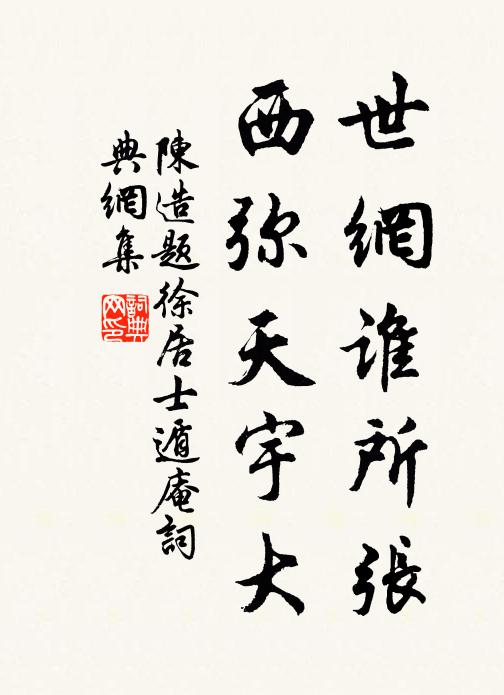 世網誰所張
西弥天宇大
陳造題徐居士遁庵詞
典網集
詞典
网印